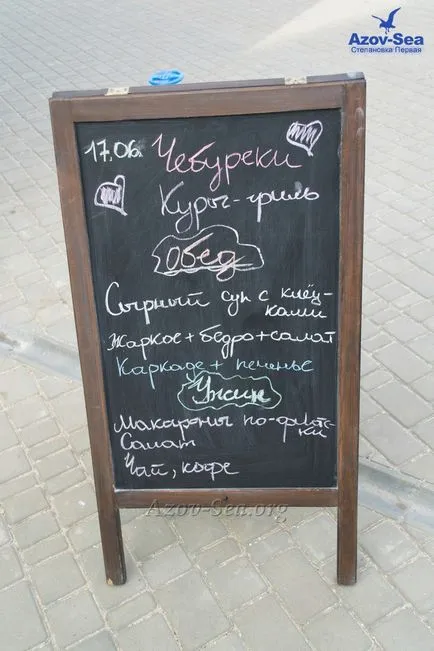 Azov-Sea
Степановка Первая
17.06.
Чебуреки
Куры-гриль
Обед
Сырный суп с клёц-
ками
Жаркое + бедро + салат
Каркаде + печенье
Ужин
Макароны по-флотс-
ки
Салат
Чай, кофе
Azov-Sea.org